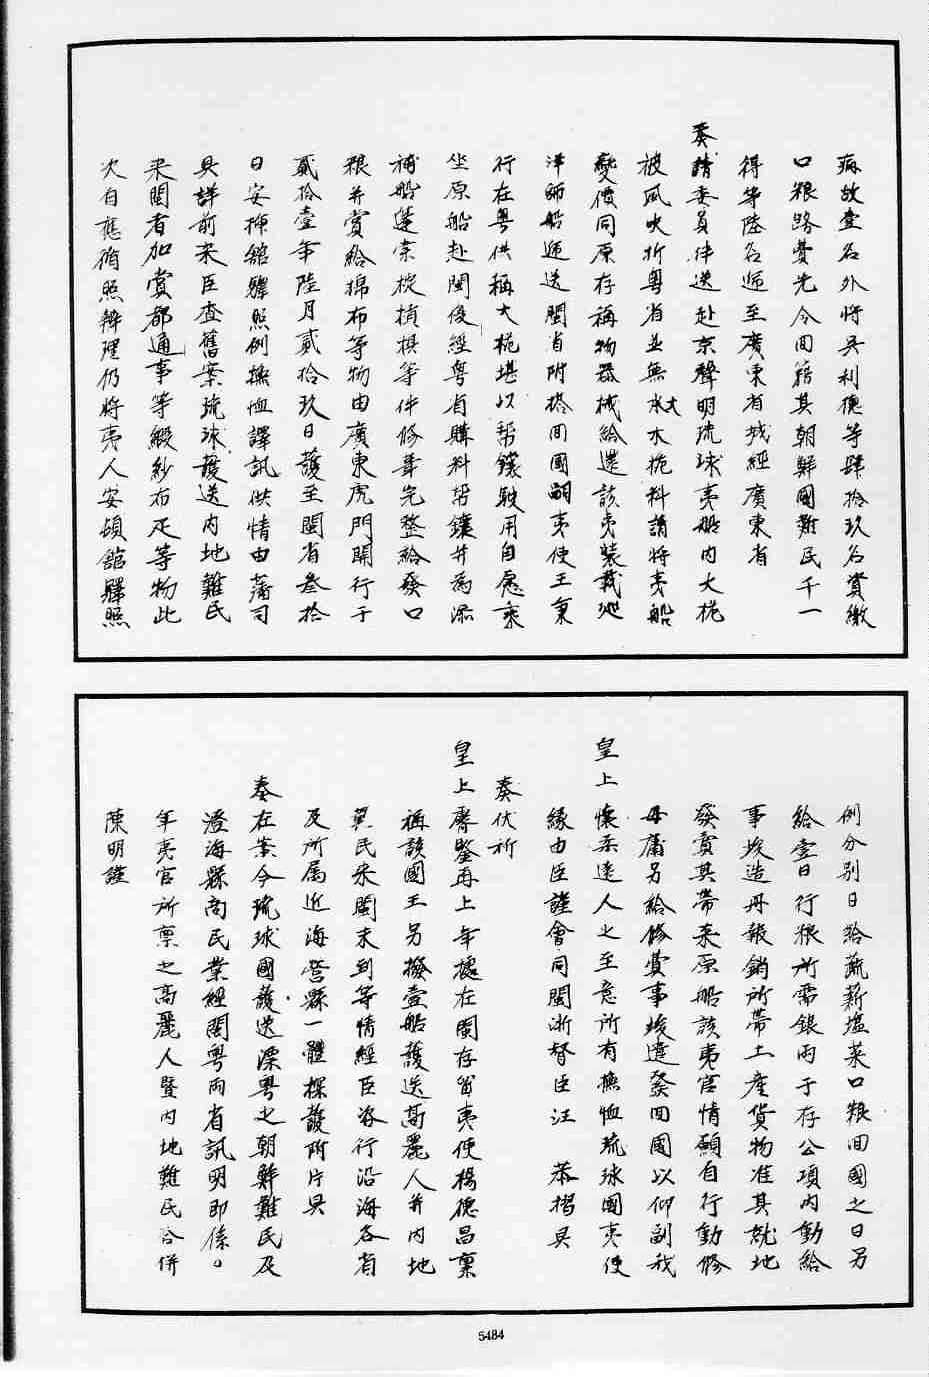 病故壹名外將吳利德等肆拾玖名資繳
口粮路費先令回籍其朝鮮國難民千一
得等陸名遞至廣東省城經廣東省
奏請委員伴送赴京聲明琉球夷船內大桅
被風吹折粵省並無大水桅料請將夷船
變價同原存稱物器械給還該夷裝載
洋師船遞送閩省附搭回國嗣夷使王秉
行在粵供稱大桅堪以幫鑲駛用自愿乘
坐原船赴閩復經粵省購料幫鑲并為添
補船蓬索椗槓椇等件修葺完整給發口
粮并賞給棉布等物由廣東虎門開行于
貳拾壹年陸月貳拾玖日護至閩省叁拾
日安揷舘驛照例撫恤譯訊供情由藩司
具詳前來臣查舊案琉球護送內地難民
來閩者加賞都通事等緞紗布疋等物此
次自應循照辦理仍將夷人安頓舘驛照
例分別日給蔬薪塩菜口粮回國之日另
給壹月行粮所需銀兩于存公項內動給
事竣造冊報銷所帶土產貨物准其就地
發賣其帶來原船該夷官情願自行動修
毋庸另給修賞事竣遣發回國以仰副我
皇上懷柔遠人之至意所有撫恤琉球國夷使
緣由臣謹會同閩浙督臣汪　恭摺具
奏伏祈
皇上睿鑒再上年據在閩存留夷使楊德昌稟
稱該國王另撥壹船護送高麗人并內地
難民來閩未到等情經臣咨行沿海各省
及所属近海營縣一體探護附片具
奏在案今琉球國護送漂粵之朝鮮難民及
澄海縣商民業經閩粵兩省訊明即係
年夷官所稟之高麗人暨內地難民合併
陳明謹
5484